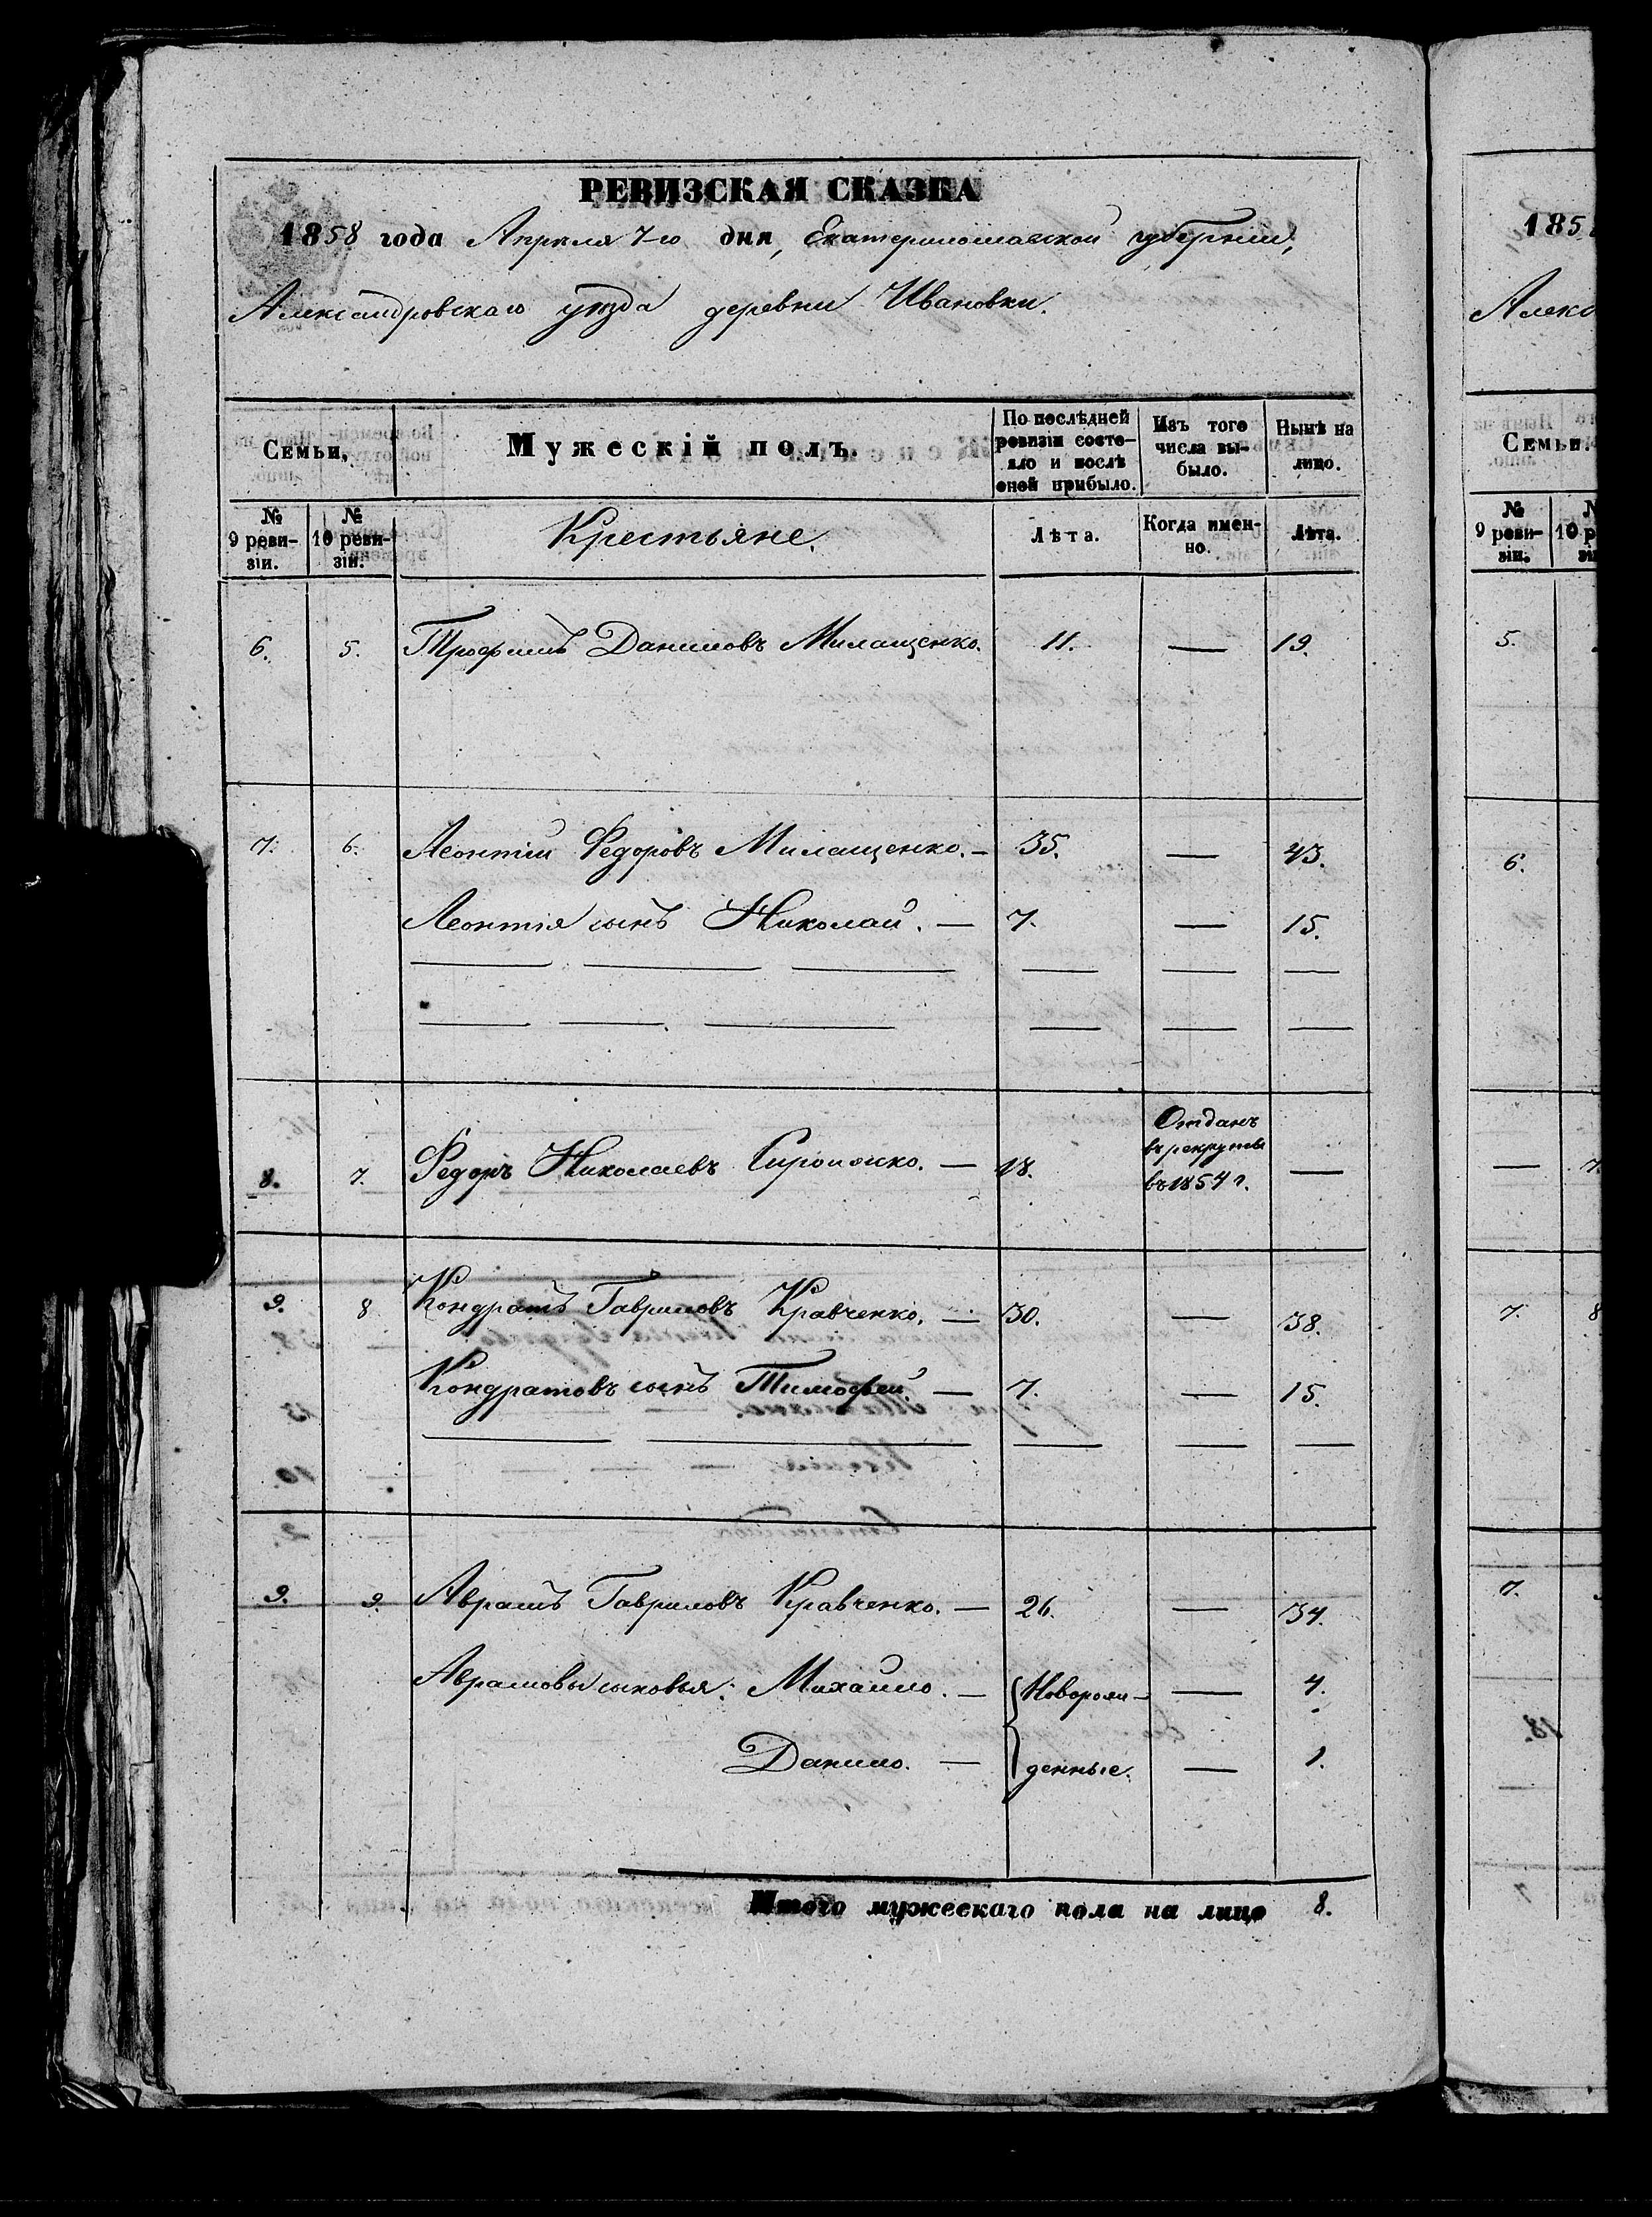 РЕВИЗСКАЯ СКАЗКА
1858 года Апреля 7-го дня, Екатеринославской губернии,
Александровскаго уезда деревни Ивановки.
Семьи. Мужескій полъ. По послѣдней ревизіи состо- яло и послѣ оной прибыло. Изъ того числа вы- было. Нынѣ на лицо.
№ 9 реви- зіи. № 10 реви- зіи. Крестьяне. Лѣта. Когда имен- но. Лѣта.
6. 5. Трофимъ Даниловъ Милащенко. 11. — 19.
7. 6. Леонтій Федоровъ Милащенко. — 35. — 43.
Леонтія сынъ Николай. — 7. — 15.
Отданъ
въ рекруты
8. 7. Федоръ Николаевъ — 18. въ 1854 г. —
9. 8 Кондратъ Гавриловъ Кравченко. — 30. — 38.
Кондратовъ сынъ Тимофей. — 7. — 15.
9. 9. Аврамъ Гавриловъ Кравченко. — 26. — 34.
Аврамовы сыновья: Михайло. — Новорож- — 4.
Данило. — денные. — 1.
Итого мужескаго пола на лицо 8.
185
Алекс
Семьи.
№ 9 реви- зіи. 10 р
5.
6.
— 7.
7. 8
7.